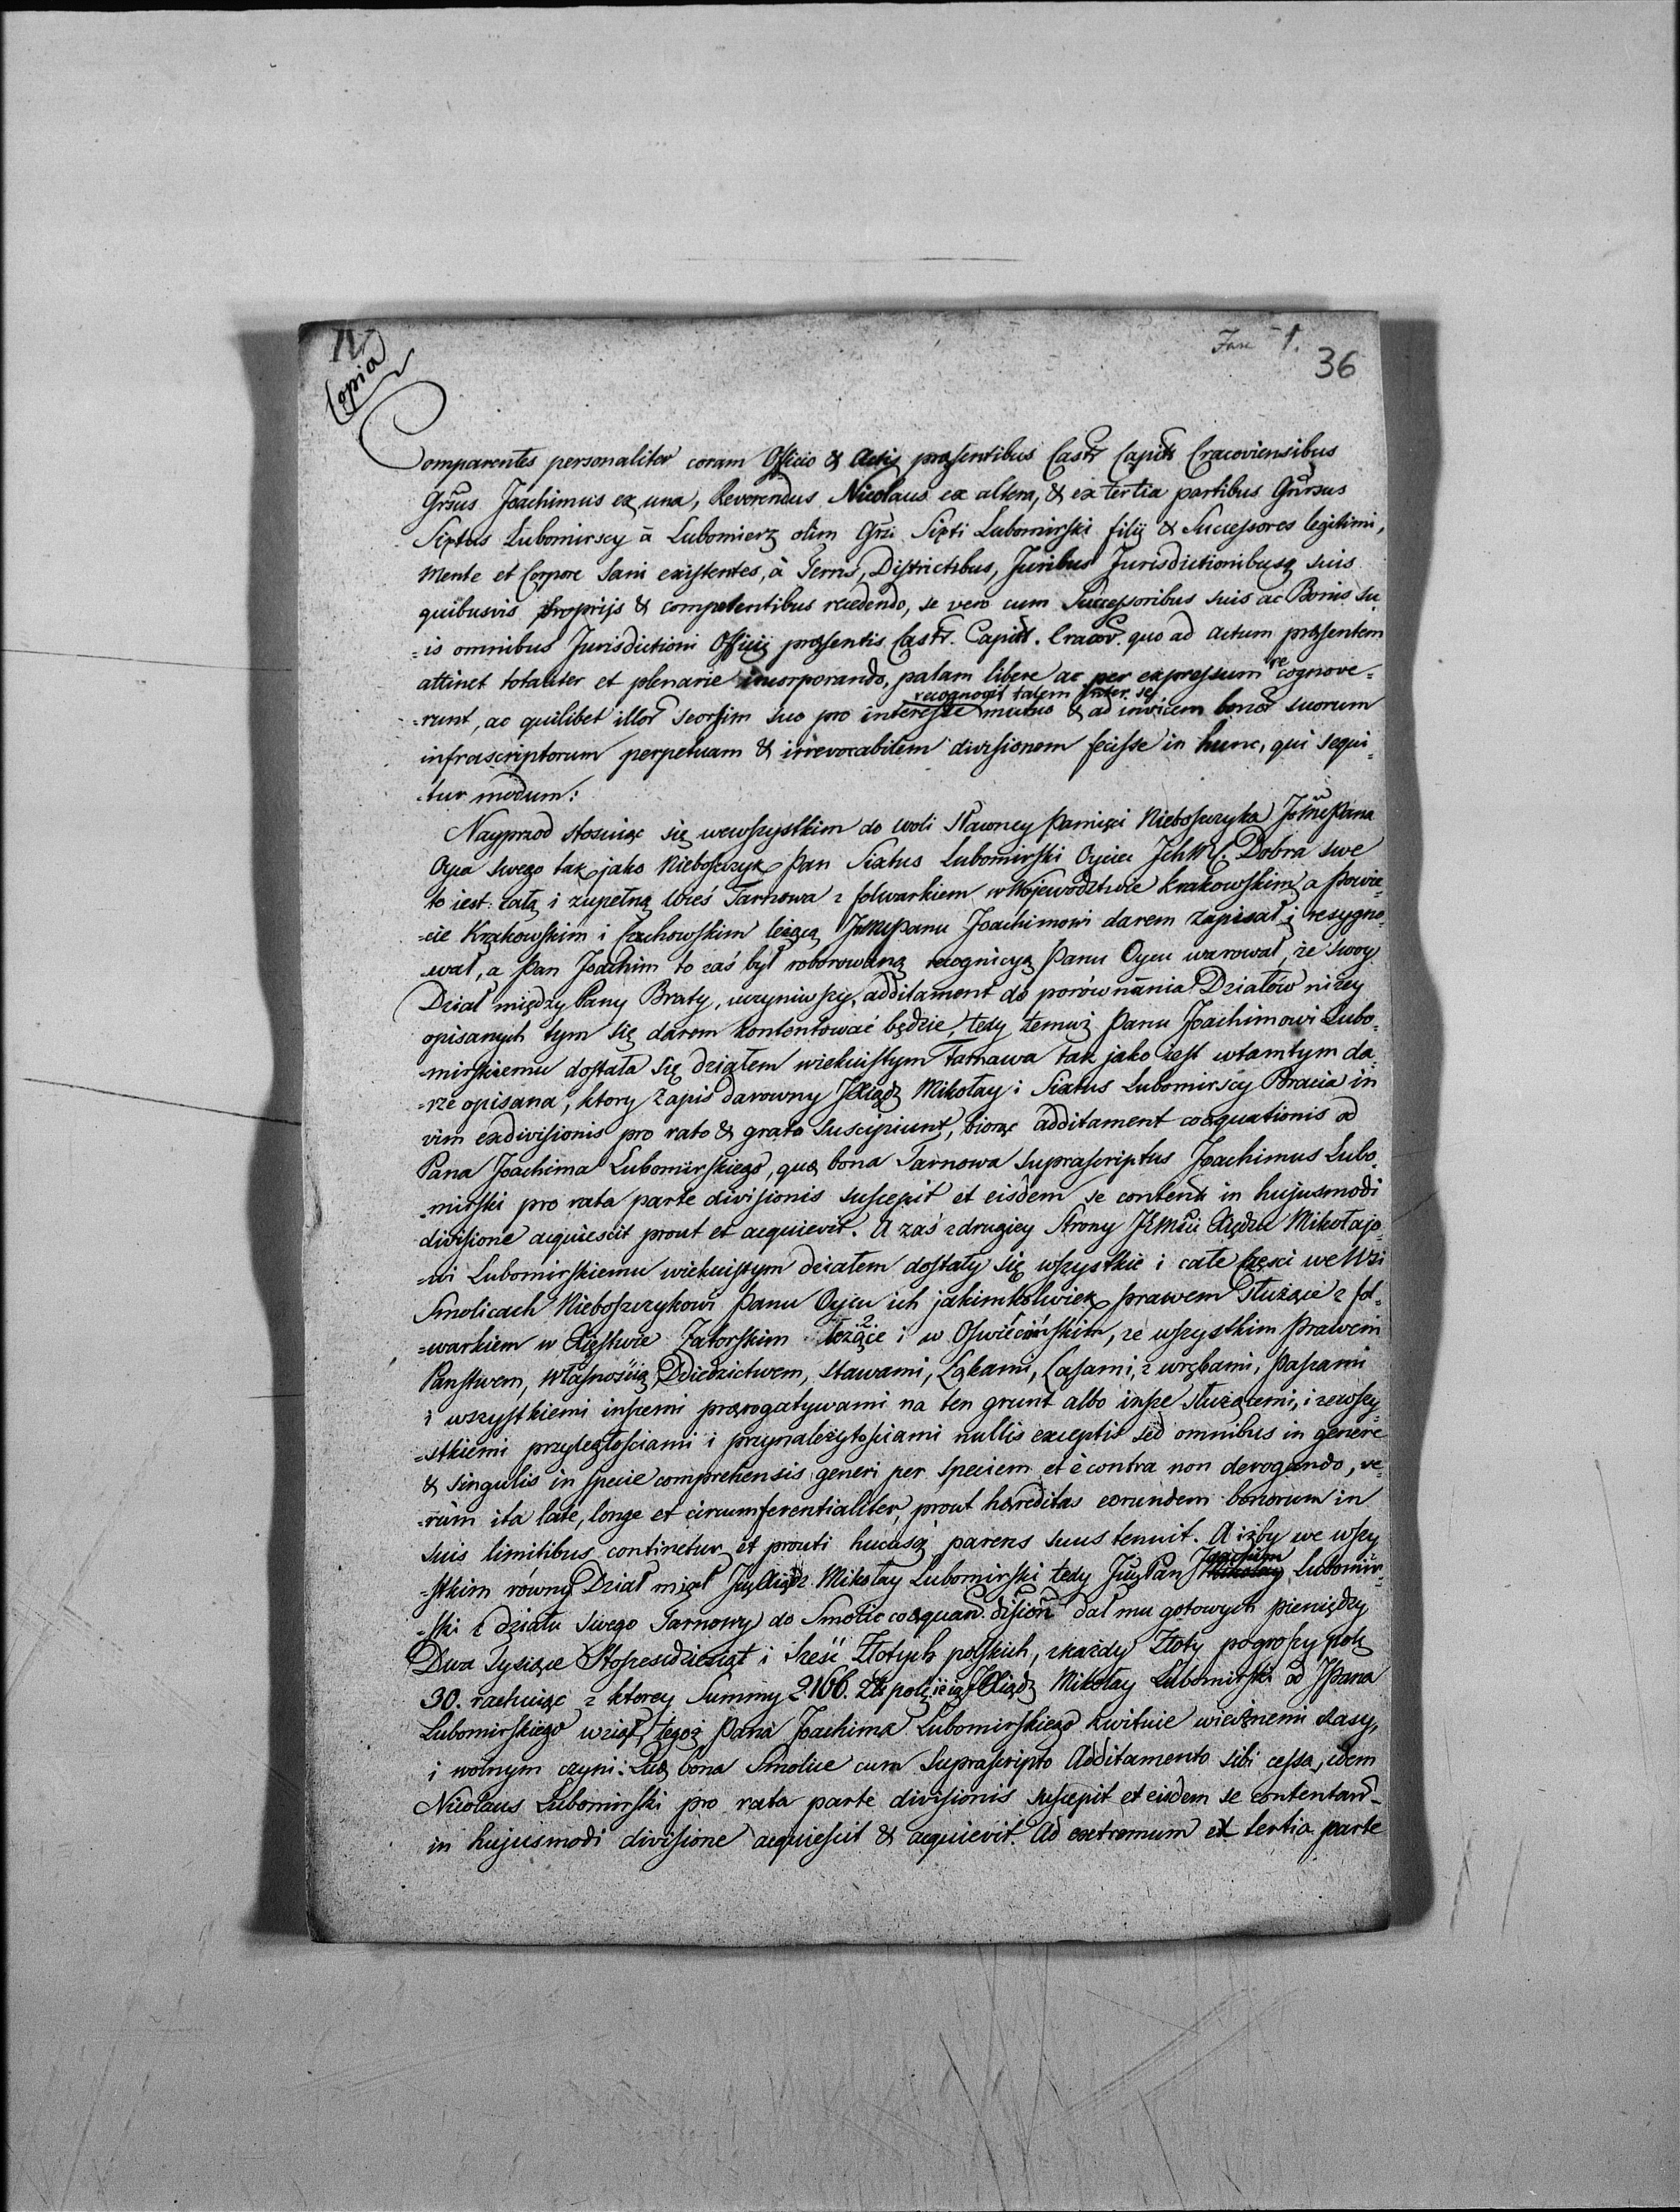 IV
Copia
Fasc 1.
36
Comparentes personaliter coram Officio & Actis præsentibus Castr Capitt Cracoviensibus
Grsus Joachimus ex una, Reverendus Nicolaus ex altera, & ex tertia partibus Grsus
Sixtus Lubomirscy à Lubomierz olim Grsi Sixti Lubomirski filij & Successores legitimi,
Mente et Corpore Sani existentes, à Terris, Districtibus, Juribus Jurisdictionibusq suis
quibusvis proprijs & competentibus recedendo, se vero cum Successoribus suis ac Bonis su
=is omnibus Jurisdictioni Officij præsentis Castr. Capitt. Cracov. quo ad actum præsentem
attinet totaliter et plenarie incorporando, palam libere ac per expressum recognove=
recognovit talem inter se
=runt, ac quilibet illor seorsim suo pro interesse mutuo & ad invicem bonor suorum
infrascriptorum perpetuam & irrevocabilem divisionem fecisse in hunc, qui sequi=
=tur modum:
Nayprzod stosuiąc się wewszystkim do woli Sławney Pamięci Nieboszczyka JPana
Oyca swego tak jako Nieboszczyk Pan Sixtus Lubomirski Oyciec Dobra swe
to iest całą i zupełną Wieś Tarnowa z folwarkiem w Wojewodztwie Krakowskim a Powie=
=cie Krakowskim i leżącą Panu Joachimowi darem zapisał i resygno=
wał, a Pan Joachim to zaś był roborowaną recognicyą Panu Oycu warował, że swoy
Dział między Pany Braty, uczyniwszy additament do porównania Działów niżey
opisanych tym się darem kontentować będzie, tedy temuż Panu Joachimowi Lubo=
=mirskiemu dostała się działem wiekuistym Tarnawa tak jako iest wtamtym da=
=rze opisana, ktory Zapis darowny JXiądz Mikołay i Sixtus Lubomirscy Bracia in
vim exdivisionis pro rato & grato suscipiunt, biorąc additament coæquationis od
Pana Joachima Lubomirskiego, quæ bona Tarnowa suprascriptus Joachimus Lubo=
=mirski pro rata parte divisionis suscepit et eisdem se content in hujusmodi
divisione acquiescit prout et acquievit. A zaś zdrugiey Strony Xiędzu Mikołajo=
=wi Lubomirskiemu wiekuistym działem dostały się wszystkie i całe części we Wsi
Smolicach Nieboszczykowi Panu Oycu ich jakimkolwiek prawem służące z fol=
=warkiem w Xięstwie Zatorskim leżące i w Oswiecimskim, ze wszystkim Prawem
Panstwem, Własnością, Dziedzictwem, stawami, Łąkami, Lasami, z wrębami, Paszami
i wszystkiemi inszemi prærogatywami na ten grunt albo insze służącemi, i zewszy=
=stkiemi przyległościami i przynależytościami nullis exceptis sed omnibus in genere
& singulis in specie comprehensis generi per speciem et è contra non derogando, ve=
=rùm ita late, longe et circumferentialiter, prout hæreditas eorundem bonorum in
suis limitibus continetur et prouti hucusq parens suus tenuit. A iżby we wszy
=stkim równy Dział miał Mikołay Lubomirski tedy Pan Joachim Lubomir=
=ski z działu swego Tarnowy do Smolic coæquan. dał mu gotowych pieniędzy
Dwa Tysiące Stosześdziesiąt i Sześć Złotych polskich, zkażdy Złoty pogroszy pols
30. rachuiąc z ktorey Summy 2166. Zł pols JXiądz Mikołay Lubomirski od JPana
Lubomirskiego wziął, tegoż Pana Joachima Lubomirskiego kwituie wiecznemi czasy,
i wolnym czyni: Quæ bona Smolice cum suprascripto Additamento sibi cessa, idem
Nicolaus Lubomirski pro rata parte divisionis suscepit et eisdem se contentand
in hujusmodi divisione acquiescit & acquievit. Ad extremum ex tertia parte